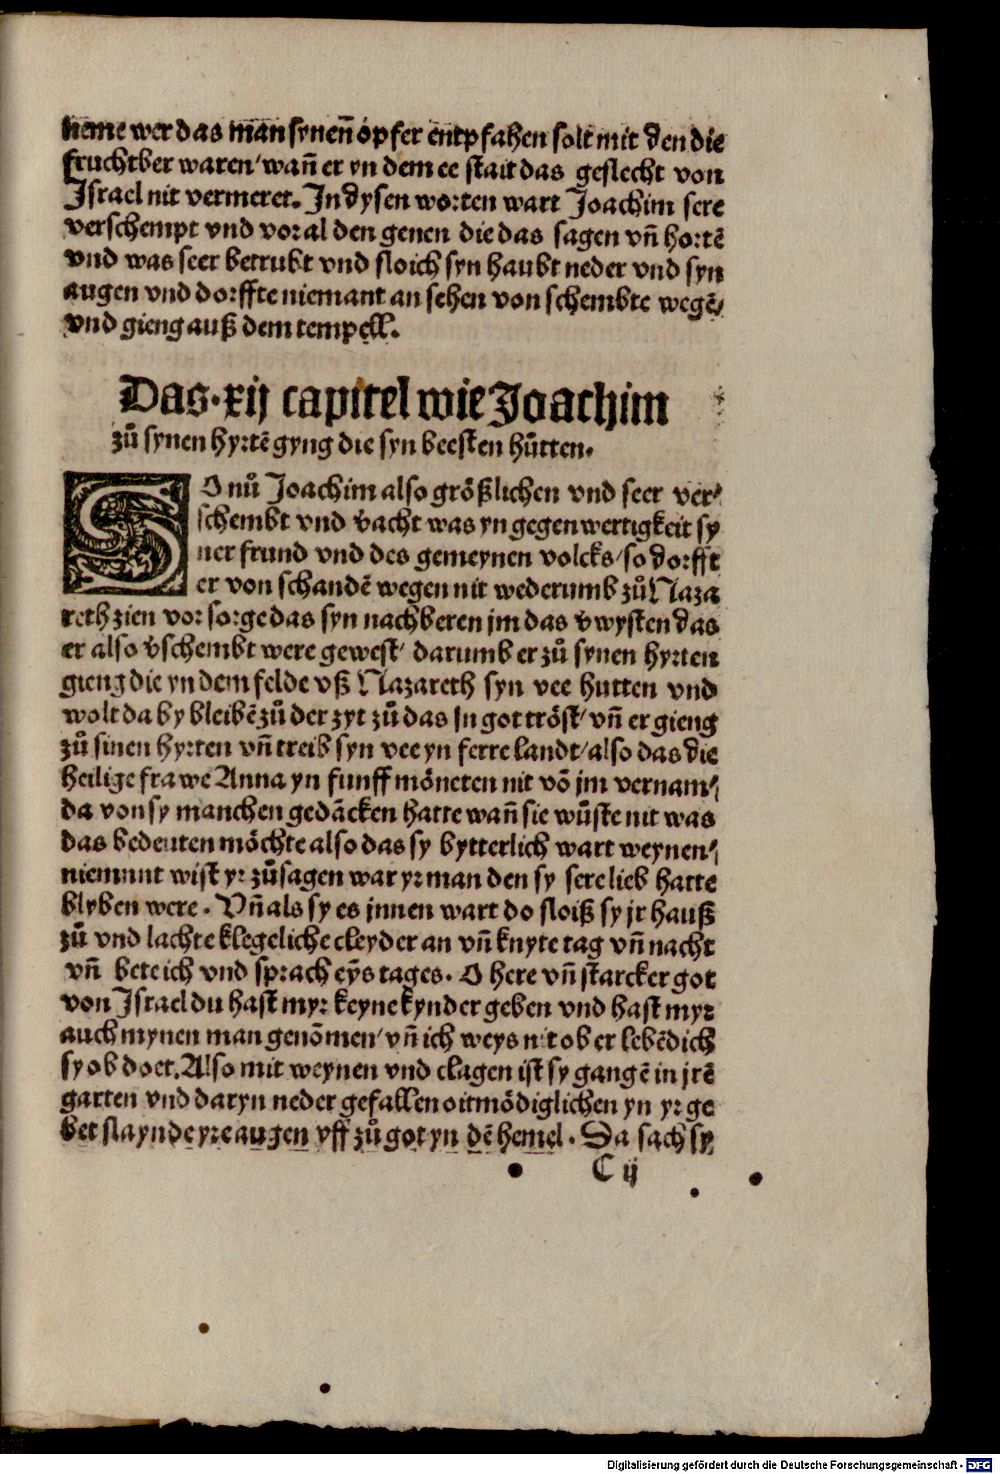 neme wer das man synenn̄ opfer entpfahen solt mit den die
fruchtber waren/wan̄ er yn dem ee stait das geslecht von
Israel nit vermeret. In dysen worten wart Joachim sere
verschempt vnd vor al den genen die das sagen vn̄ hortē
vnd was seer betrubt vnd sloich syn haubt neder vnd syn
augen vnd dorffte niemant an sehen von schembte wegē/
vnd gieng auß dem tempell.
Das.xij capitel wie Joachim
zů synen hyrtē gyng die syn beesten hůtten.
SO nů Joachim also größlichen vnd seer ver/
schembt vnd v̄acht was yn gegenwertigkeit sy
ner frund vnd des gemeynen volcks/so dorfft
er von schandē wegen nit wederumb zů Naza
reth zien vor sorge das syn nachberen jm das v̄wysten das
er also v̄schembt were gewest/ darumb er zů synen hyrten
gieng die yn dem felde vß Nazareth syn vee hutten vnd
wolt da by bleibē zů der zyt zů das jn got tröst/vn̄ er gieng
zů sinen hyrten vn̄ treib syn vee yn ferre landt/also das die
heilige frawe Anna yn funff möneten nit vō jm vernam/
da von sy manchen gedäcken hatte wan̄ sie wůste nit was
das bedeuten möchte also das sy bytterlich wart weynen/
niemant wist yr zůsagen war yr man den sy sere lieb hatte
blyben were. Vn̄ als sy es jnnen wart do sloiß sy jr hauß
zů vnd lachte klegeliche cleyder an vn̄ knyte tag vn̄ nacht
vn̄ bete ich vnd sprach eȳs tages. O here vn̄ starcker got
von Israel du hast myr keyne kynder geben vnd hast myr
auch mynen man genōmen/vn̄ ich weys nit ob er lebēdich
sy ob doet. Also mit weynen vnd clagen ist sy gangē in jrē
garten vnd daryn neder gefallen oitmödiglichen yn yr ge
bet slaynde yre augen vff zů got yn dē hemel. Da sach sy
C ij
Digitalisierung gefördert durch die Deutsche Forschungsgemeinschaft - DFG